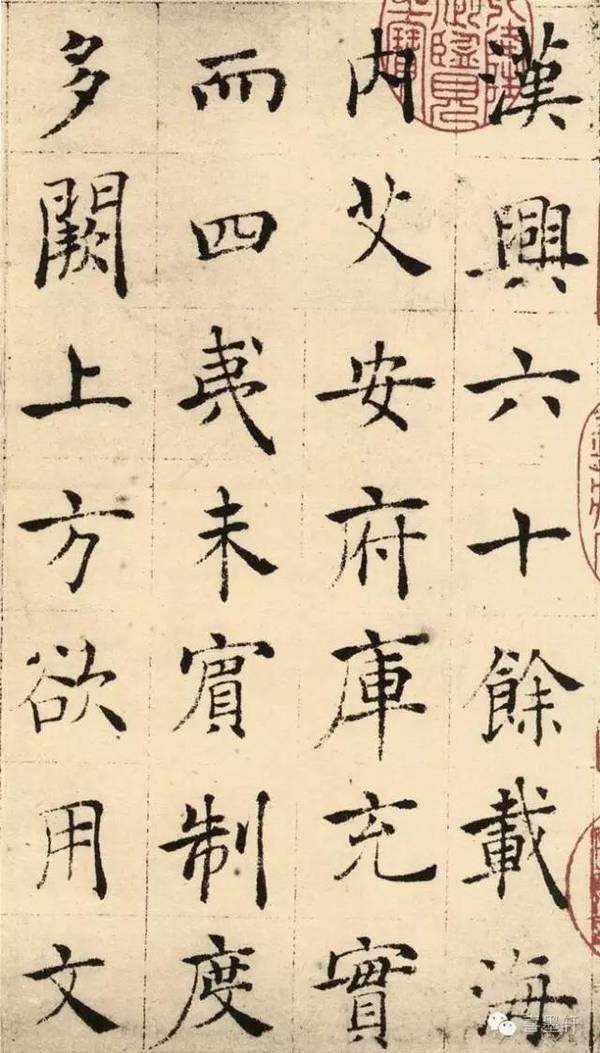 漢興六十餘載海
內艾安府庫充實
而四夷未賓制度
多闕上方欲用文
喜墨轩